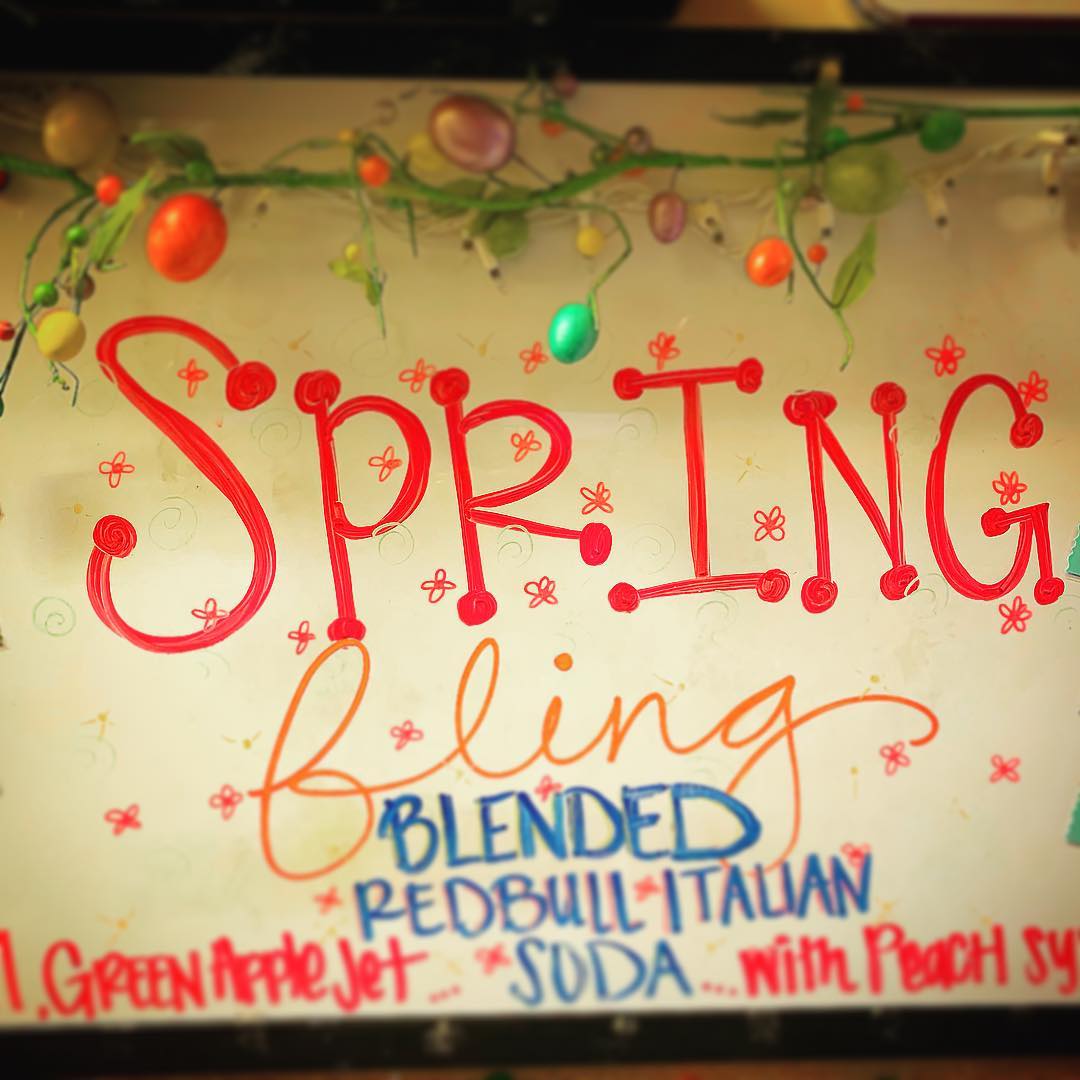 SPRING
fling
BLENDED
REDBULL ITALIAN
1. GREEN Apple Jet ... SODA ... with PEACH Sy